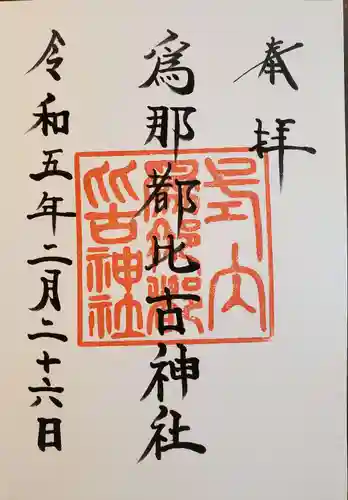 奉拝
為那都比古神社
令和五年二月二十六日
式内
為那都
比古神社